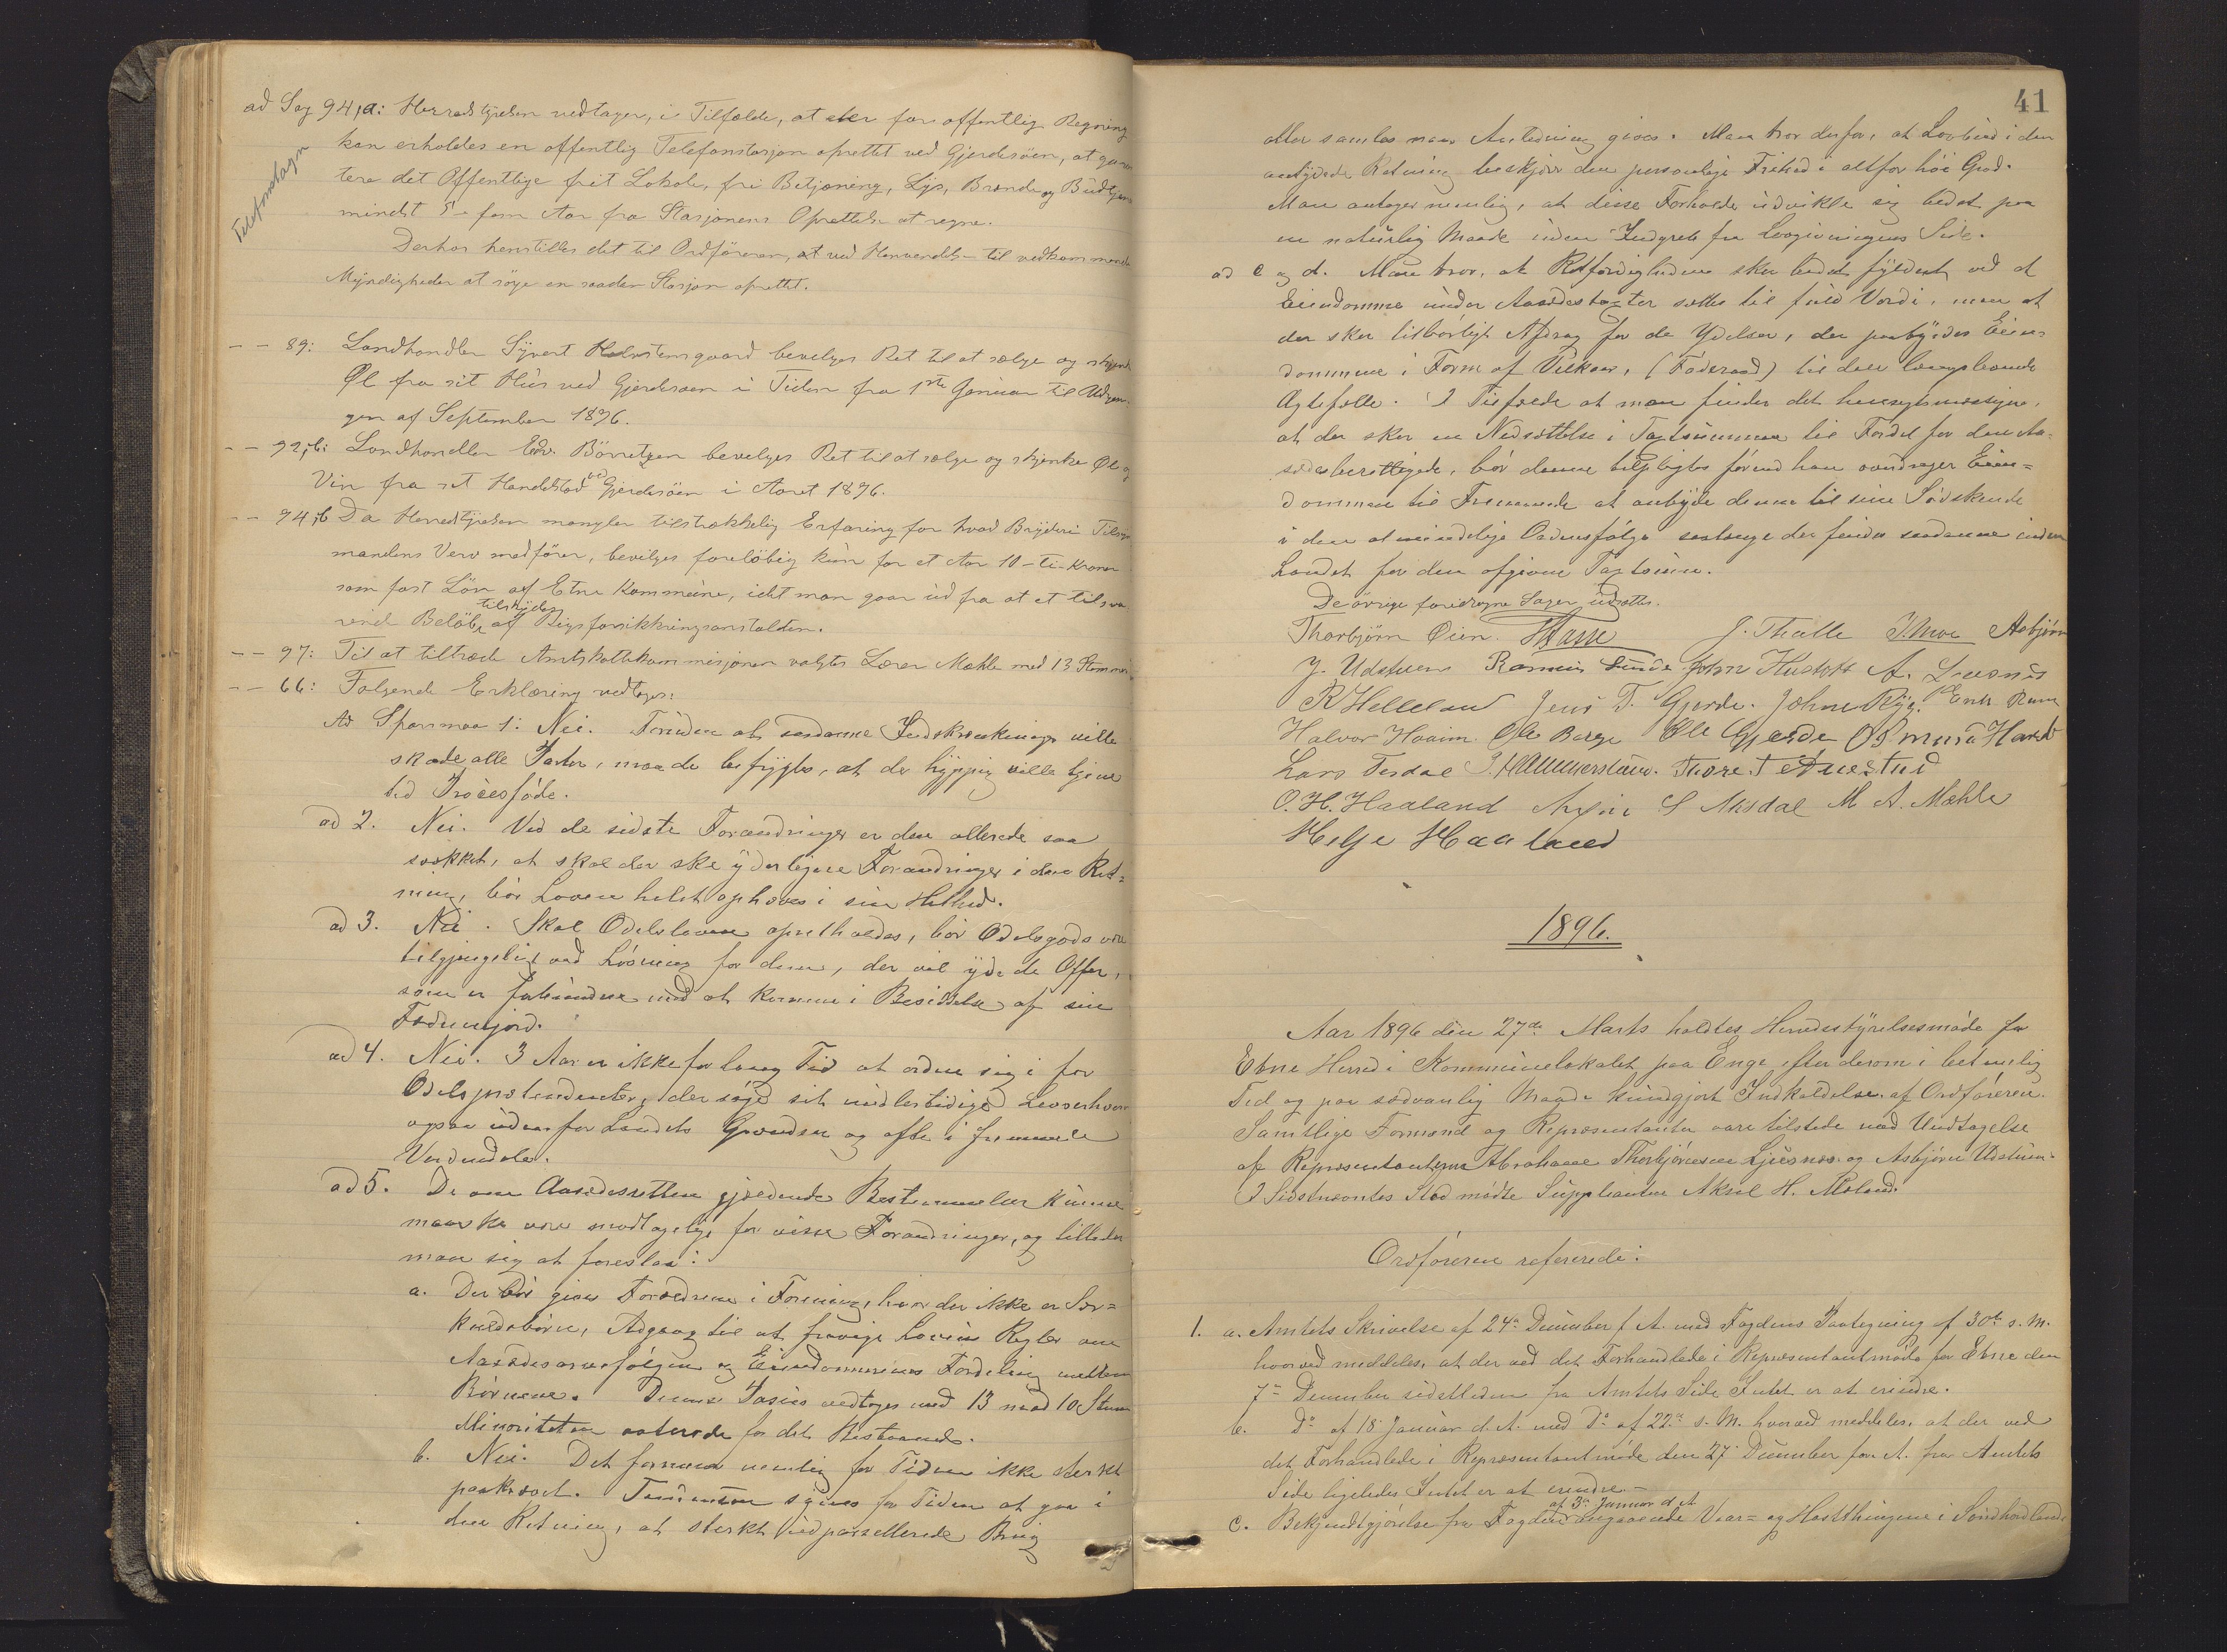 ad Sag 94,a: Herredstyrelsen vedtager, i Tilfælde, at der for offentlig Regning
kan erholdes en offentlig Telefonstasjon oprettet ved Gjerdesøen, at garan
tere det Offentlige frit Lokale, fri Betjening, Lys, Brænde og Budtjen
mindst 5 - fem Aar fra Stasjonens Oprettelse at regne.
Telefonstasjon
Derhos henstilles det til Ordføreren, at ved Henvendelse til vedkommende
Myndigheder at søge en saadan Stasjon oprettet.
- - 89: Landhandler Syvert Holstensgaard bevilges Ret til at sælge og skjenke
Øl fra sit Hus ved Gjerdesøen i Tiden fra 1ste Januar til Udgan-
gen af September 1896.
- - 92,b: Landhandler Edv. Børretzen bevilges Ret til at sælge og skjenke Øl og
Vin fra sit Handelsted ved Gjerdesøen i Aaret 1896.
- - 94,b Da Herredstyrelsen mangler tilstrækkelig Erfaring for hvad Bryderi Tilsyns
mandens Verv medfører, bevilges foreløbig kun for et Aar 10 - ti - Kroner
som fast Løn af Etne Kommune, idet man gaar ud fra at et tilsva
tilskydes
rende Beløb af Rigsforsikringsanstalten.
- - 97: Til at tiltræde Amtsskattekommisjonen valgtes Lærer Mæhle med 13 Stemmer
- - 66: Følgende Erklæring vedtoges:
Ad Spørsmaa 1: Nei. Foruden at saadanne Indskrænkninger ville
skade alle Parter, maa de befrygtes, at de hyppig ville tjene
til Procesføde.
ad 2. Nei. Ved de sidste Forandringer er den allerede saa
svækket, at skal der ske yderligere Forandringer i den Ret-
ning, bør Loven helst ophæves i sin Helhed.
ad 3. Nei. Skal Odelsloven opretholdes, bør Odelsgods være
tilgjængelig ved Løsning for dem, der vil yde de Offer,
som er forbundne med at komme i Besiddelse af sin
Fædrenejord.
ad 4. Nei. 3 Aar er ikke for lang Tid at ordne sig i for
Odelsprætendenter, der søge sit midlertidige Leveerhverv
ogsaa udenfor Landets Grændser og ofte i fremmede
Verdensdele.
ad 5. De om Aasædesretten gjældende Bestemmelser kunne
maaske være modtagelige for visse Forandringer, og tillader
man sig at foreslaa:
a. Der bør gives Forældrene i Forening, hvor der ikke er Sær-
kuldsbørn, Adgang til at fravige Lovens Regler om
Aasædesarvefølgen og Eiendommenes Fordeling mellem
Børnene. Denne Passus vedtoges med 13 mod 10 Stem
Minoriteten voterede for det Bestaaende.
b. Nei. Det formenes nemlig for Tiden ikke sterkt
paakrævet. Tendensen synes for Tiden at gaa i
den Retning, at sterkt udparsellerede Brug
41
atter samles naar Anledning gives. Man tror derfor, at Lovbud i den
antydede Retning beskjær den personlige Frihed i altfor høi Grad.
Man antager nemlig, at disse Forholde udvikle sig bedst paa
en naturlig Maade uden Indgreb fra Lovgivningens Side.
ad c og d. Man tror, at Retfærdigheden sker bedst fyldest ved at
Eiendomme under Aasædestagter sættes til fuld Værdi, men at
der sker tilbørligt Afdrag for de Ydelser, der paabyrdes Eien-
dommene i Form af Vilkaar, (Føderaad) til den længstlevende
Ægtefælle. I Tilfælde at man finder det hensigtsmæssigere,
at der sker en Nedsættelse i Taxtsummen til Fordel for den Aa-
sædesberettigede, bør denne tilpligtes førend han overdrager Eien-
dommen til Fremmede at anbyde denne til sine Sødskende
i den almindelige Ordensfølge saalænge der findes saadanne inden
Landet for den afgivne Taxtsum.
De øvrige foredragne Sager udsættes.
Thorbjørn Øien. J. Thalle I. Moe Asbjørn
J. Udstuen Rasmus Sunde John Hustoft A.
R Hellesen Jens T. Gjerde. Johne Ryg. Erik
Halvor Haaim. Ole Berge Ole Gjerde
Lars Tesdal J. Hammerstein. Thore T
O. H. Haaland S Aksdal M A. Mæhle
Helge Haaland
1896.
Aar 1896 den 27de Marts holdtes Herredsstyrelsesmøde for
Etne Herred i Kommunelokalet paa Enge efter derom i betimelig
Tid og paa sædvanlig Maade kundgjort Indkaldelse af Ordføreren.
Samtlige Formænd og Repræsentanter vare tilstede med Undtagelse
af Repræsentanterne Abraham Thorbjørnsen Ljusnæs og Asbjørn Udstuen.
I Sidstnævntes Sted mødte Suppleanten Aksel H. Moland.
Ordføreren refererede:
1. a. Amtets Skrivelse af 24de December f. A. med Fogdens Paategning af 30te s. M.
hvorved meddeles, at der ved det Forhandlede i Repræsentantmøde for Etne den
7de December sidstleden fra Amtets Side Intet er at erindre.
b. Do af 18 Januar d. A. med Do af 22de s. M. hvorved meddeles, at der ved
det Forhandlede i Repræsentantmøde den 27 December for. A. fra Amtets
Side ligeledes Intet er at erindre.
af 3de Januar d. A
c. Bekjendtgjørelse fra Fogden angaaende Vaar- og Høstthingene i Søndhordland